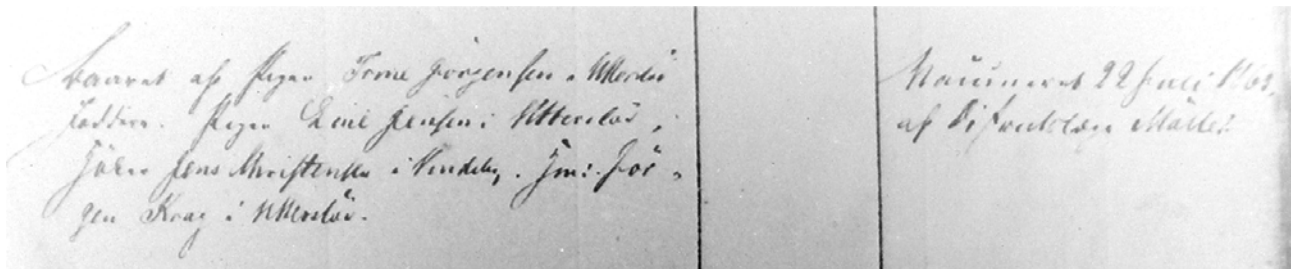 Baaret af Pigen Trine Jørgensen i Utterslev
Faddere. Pigen Jensen i Utterslev,
Jens Christensen i Vindeby. Jør-
gen Krag i Utterslev.
Vaccineret 22 Juni
af Districtslæge Møller.